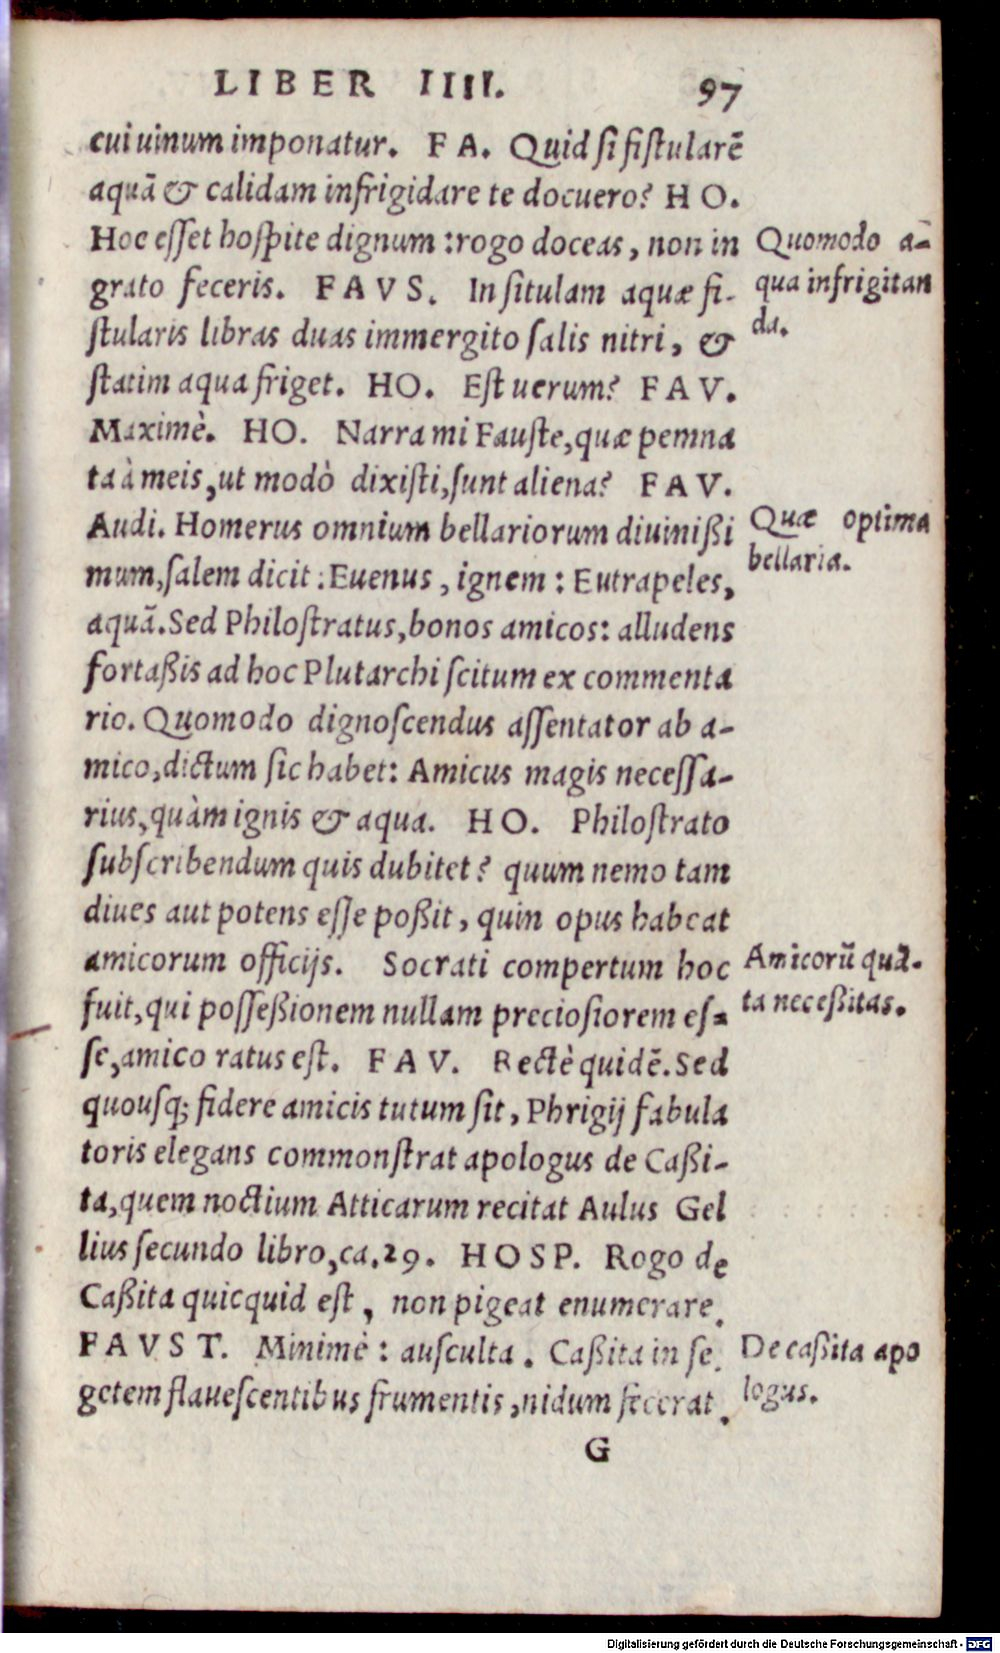 LIBER IIII. 97
cui uinum imponatur. FA. Quid si fistularē
aquā & calidam infrigidare te docuero? HO.
Hoc esset hospite dignum : rogo doceas, non in
grato feceris. FAVS. In situlam aquæ fi-
stularis libras duas immergito salis nitri, &
statim aqua friget. HO. Est uerum? FAV.
Maximè. HO. Narra mi Fauste, quæ pemna
ta à meis, ut modò dixisti, sunt aliena? FAV.
Audi. Homerus omnium bellariorum diuinißi
mum, salem dicit : Euenus, ignem : Eutrapeles,
aquā. Sed Philostratus, bonos amicos: alludens
fortaßis ad hoc Plutarchi scitum ex commenta
rio. Quomodo dignoscendus assentator ab a-
mico, dictum sic habet: Amicus magis necessa-
rius, quàm ignis & aqua. HO. Philostrato
subscribendum quis dubitet? quum nemo tam
diues aut potens esse poßit, quin opus habeat
amicorum officijs. Socrati compertum hoc
fuit, qui possessionem nullam preciosiorem es-
se, amico ratus est. FAV. Rectè quidē. Sed
quousq; fidere amicis tutum sit, Phrigij fabula
toris elegans commonstrat apologus de Caßi-
ta, quem noctium Atticarum recitat Aulus Gel
lius secundo libro, ca. 29. HOSP. Rogo de
Caßita quicquid est, non pigeat enumerare.
FAVST. Minimè : ausculta. Caßita in se
getem flauescentibus frumentis, nidum fecerat.
G
Quomodo a-
qua infrigitan
da.
Quæ optima
bellaria.
Amicorū quā-
ta neceßitas.
De caßita apo
logus.
Digitalisierung gefördert durch die Deutsche Forschungsgemeinschaft - DFG